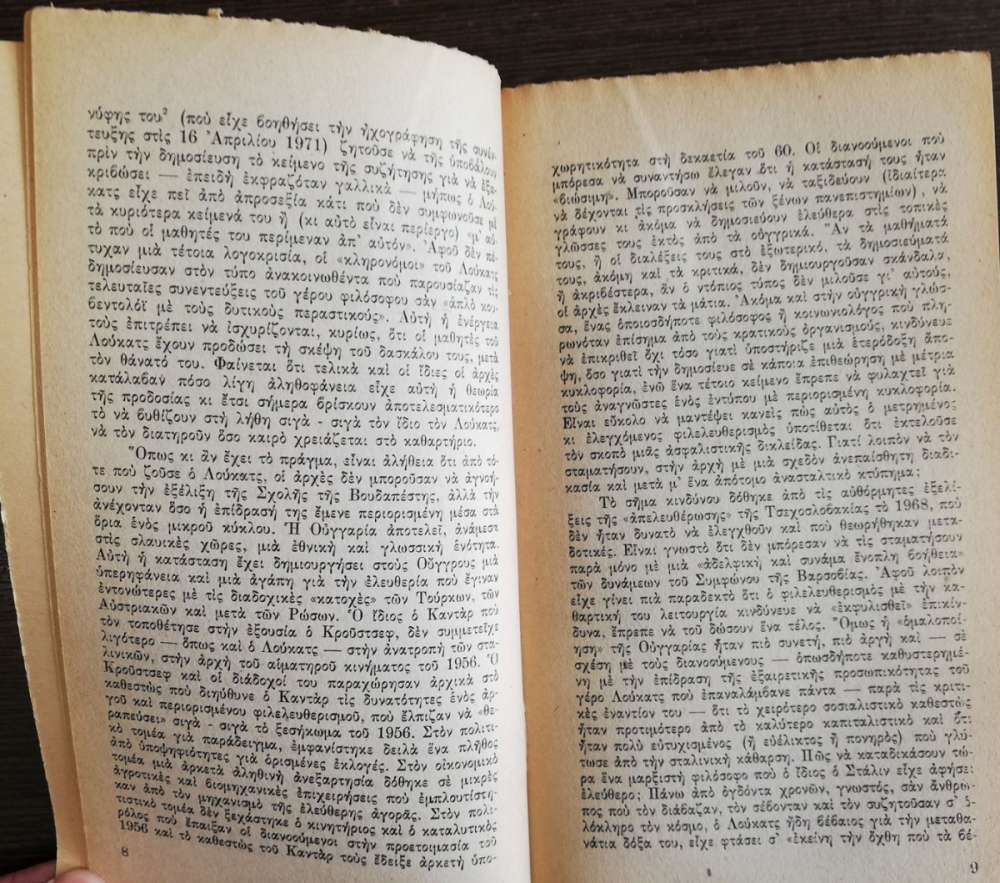 νύφης του² (ποὺ εἶχε βοηθήσει τὴν ἠχογράφηση τῆς συνέν-
τευξης στὶς 16 Ἀπριλίου 1971) ζητοῦσε νὰ τῆς ὑποβάλουν
πρὶν τὴν δημοσίευση τὸ κείμενο τῆς συζήτησης γιὰ νὰ ἐξα-
κριβώσει — ἐπειδὴ ἐκφραζόταν γαλλικὰ — μήπως ὁ Λού-
κατς εἶχε πεῖ ἀπὸ ἀπροσεξία κάτι ποὺ δὲν συμφωνοῦσε μὲ
τὰ κυριότερα κείμενά του ἢ (κι αὐτὸ εἶναι περίεργο) «μ' αὐ-
τὸ ποὺ οἱ μαθητές του περίμεναν ἀπ' αὐτόν». Ἀφοῦ δὲν πέ-
τυχαν μιὰ τέτοια λογοκρισία, οἱ «κληρονόμοι» τοῦ Λούκατς
δημοσίευσαν στὸν τύπο ἀνακοινωθέντα ποὺ παρουσίαζαν τὶς
τελευταῖες συνεντεύξεις τοῦ γέρου φιλόσοφου σὰν «ἁπλὸ κου-
βεντολόϊ μὲ τοὺς δυτικοὺς περαστικούς». Αὐτὴ ἡ ἐνέργεια
τοὺς ἐπιτρέπει νὰ ἰσχυρίζονται, κυρίως, ὅτι οἱ μαθητὲς τοῦ
Λούκατς ἔχουν προδώσει τὴ σκέψη τοῦ δασκάλου τους, μετὰ
τὸν θάνατό του. Φαίνεται ὅτι τελικὰ καὶ οἱ ἴδιες οἱ ἀρχὲς
κατάλαβαν πόσο λίγη ἀληθοφάνεια εἶχε αὐτὴ ἡ θεωρία
τῆς προδοσίας κι ἔτσι σήμερα βρίσκουν ἀποτελεσματικότερο
τὸ νὰ βυθίζουν στὴ λήθη σιγὰ - σιγὰ τὸν ἴδιο τὸν Λούκατς,
νὰ τὸν διατηροῦν ὅσο καιρὸ χρειάζεται στὸ καθαρτήριο.
Ὅπως κι ἂν ἔχει τὸ πράγμα, εἶναι ἀλήθεια ὅτι ἀπὸ τό-
τε ποὺ ζοῦσε ὁ Λούκατς, οἱ ἀρχὲς δὲν μποροῦσαν νὰ ἀγνοή-
σουν τὴν ἐξέλιξη τῆς Σχολῆς τῆς Βουδαπέστης, ἀλλὰ τὴν
ἀνέχονταν ὅσο ἡ ἐπίδρασή της ἔμενε περιορισμένη μέσα στὰ
ὅρια ἑνὸς μικροῦ κύκλου. Ἡ Οὑγγαρία ἀποτελεῖ, ἀνάμεσα
στὶς σλαυικὲς χῶρες, μιὰ ἐθνικὴ καὶ γλωσσικὴ ἑνότητα.
Αὐτὴ ἡ κατάσταση ἔχει δημιουργήσει στοὺς Οὕγγρους μιὰ
ὑπερηφάνεια καὶ μιὰ ἀγάπη γιὰ τὴν ἐλευθερία ποὺ ἔγιναν
ἐντονώτερες μὲ τὶς διαδοχικὲς «κατοχὲς» τῶν Τούρκων, τῶν
Αὐστριακῶν καὶ μετὰ τῶν Ρώσων. Ὁ ἴδιος ὁ Καντὰρ ποὺ
τὸν τοποθέτησε στὴν ἐξουσία ὁ Κροῦστσεφ, δὲν συμμετεῖχε
λιγότερο — ὅπως καὶ ὁ Λούκατς — στὴν ἀνατροπὴ τῶν στα-
λινικῶν, στὴν ἀρχὴ τοῦ αἱματηροῦ κινήματος τοῦ 1956. Ὁ
Κροῦστσεφ καὶ οἱ διάδοχοί του παραχώρησαν ἀρχικὰ στὸ
καθεστὼς ποὺ διηύθυνε ὁ Καντὰρ τὶς δυνατότητες ἑνὸς ἀρ-
γοῦ καὶ περιορισμένου φιλελευθερισμοῦ, ποὺ ἔλπιζαν νὰ «θε-
ραπεύσει» σιγὰ - σιγὰ τὸ ξεσήκωμα τοῦ 1956. Στὸν πολιτι-
κὸ τομέα γιὰ παράδειγμα, ἐμφανίστηκε δειλὰ ἕνα πλῆθος
ἀπὸ ὑποψηφιότητες γιὰ ὁρισμένες ἐκλογές. Στὸν οἰκονομικὸ
τομέα μιὰ ἀρκετὰ ἀληθινὴ ἀνεξαρτησία δόθηκε σὲ μικρὲς
ἀγροτικὲς καὶ βιομηχανικὲς ἐπιχειρήσεις ποὺ ἐμπλουτίστη-
καν ἀπὸ τὸν μηχανισμὸ τῆς ἐλεύθερης ἀγορᾶς. Στὸν πολι-
τιστικὸ τομέα δὲν ξεχάστηκε ὁ κινητήριος καὶ ὁ καταλυτικὸς
ρόλος ποὺ ἔπαιξαν οἱ διανοούμενοι στὴν προετοιμασία τοῦ
1956 καὶ τὸ καθεστὼς τοῦ Καντὰρ τοὺς ἔδειξε ἀρκετὴ ὑπο-
8
χωρητικότητα στὴ δεκαετία τοῦ 60. Οἱ διανοούμενοι ποὺ
μπόρεσα νὰ συναντήσω ἔλεγαν ὅτι ἡ κατάστασή τους ἦταν
«βιώσιμη». Μποροῦσαν νὰ μιλοῦν, νὰ ταξιδεύουν (ἰδιαίτερα
νὰ δέχονται τὶς προσκλήσεις τῶν ξένων πανεπιστημίων), νὰ
γράφουν κι ἀκόμα νὰ δημοσιεύουν ἐλεύθερα στὶς τοπικὲς
γλῶσσες τους ἐκτὸς ἀπὸ τὰ οὑγγρικά. Ἂν τὰ μαθήματά
τους, ἢ οἱ διαλέξεις τους στὸ ἐξωτερικό, τὰ δημοσιεύματά
τους, ἀκόμη καὶ τὰ κριτικά, δὲν δημιουργοῦσαν σκάνδαλα,
ἢ ἀκριβέστερα, ἂν ὁ ντόπιος τύπος δὲν μιλοῦσε γι' αὐτούς,
οἱ ἀρχὲς ἔκλειναν τὰ μάτια. Ἀκόμα καὶ στὴν οὑγγρικὴ γλώσ-
σα, ἕνας ὁποιοσδήποτε φιλόσοφος ἢ κοινωνιολόγος ποὺ πλη-
ρωνόταν ἐπίσημα ἀπὸ τοὺς κρατικοὺς ὀργανισμούς, κινδύνευε
νὰ ἐπικριθεῖ ὄχι τόσο γιατὶ ὑποστήριζε μιὰ ἑτερόδοξη ἄπο-
ψη, ὅσο γιατὶ τὴν δημοσίευε σὲ κάποια ἐπιθεώρηση μὲ μέτρια
κυκλοφορία, ἐνῶ ἕνα τέτοιο κείμενο ἔπρεπε νὰ φυλαχτεῖ γιὰ
τοὺς ἀναγνῶστες ἑνὸς ἐντύπου μὲ περιορισμένη κυκλοφορία.
Εἶναι εὔκολο νὰ μαντέψει κανεὶς πὼς αὐτὸς ὁ μετρημένος
κι ἐλεγχόμενος φιλελευθερισμὸς ὑποτίθεται ὅτι ἐκτελοῦσε
τὸν σκοπὸ μιᾶς ἀσφαλιστικῆς δικλείδας. Γιατί λοιπὸν νὰ τὸν
σταματήσουν, στὴν ἀρχὴ μὲ μιὰ σχεδὸν ἀνεπαίσθητη διαδι-
κασία καὶ μετὰ μ' ἕνα ἀπότομο ἀνασταλτικὸ κτύπημα;
Τὸ σῆμα κινδύνου δόθηκε ἀπὸ τὶς αὐθόρμητες ἐξελί-
ξεις τῆς «ἀπελευθέρωσης» τῆς Τσεχοσλοβακίας τὸ 1968, ποὺ
δὲν ἦταν δυνατὸ νὰ ἐλεγχθοῦν καὶ ποὺ θεωρήθηκαν μετα-
δοτικές. Εἶναι γνωστὸ ὅτι δὲν μπόρεσαν νὰ τὶς σταματήσουν
παρὰ μόνο μὲ μιὰ «ἀδελφικὴ καὶ συνάμα ἔνοπλη βοήθεια»
τῶν δυνάμεων τοῦ Συμφώνου τῆς Βαρσοβίας. Ἀφοῦ λοιπὸν
εἶχε γίνει πιὰ παραδεκτὸ ὅτι ὁ φιλελευθερισμὸς μὲ τὴν κα-
θαρτική του λειτουργία κινδύνευε νὰ «ἐκφυλισθεῖ» ἐπικίν-
δυνα, ἔπρεπε νὰ τοῦ δώσουν ἕνα τέλος. Ὅμως ἡ «ὁμαλοποί-
ηση» τῆς Οὑγγαρίας ἦταν πιὸ συνετή, πιὸ ἀργὴ καὶ — σὲ
σχέση μὲ τοὺς διανοούμενους — ὁπωσδήποτε καθυστερημέ-
νη μὲ τὴν ἐπίδραση τῆς ἐξαιρετικῆς προσωπικότητας τοῦ
γέρο Λούκατς ποὺ ἐπαναλάμβανε πάντα — παρὰ τὶς κριτι-
κὲς ἐναντίον του — ὅτι τὸ χειρότερο σοσιαλιστικὸ καθεστὼς
ἦταν προτιμότερο ἀπὸ τὸ καλύτερο καπιταλιστικὸ καὶ ὅτι
ἦταν πολὺ εὐτυχισμένος (ἢ εὐέλικτος ἢ πονηρὸς) ποὺ γλύ-
τωσε ἀπὸ τὴν σταλινικὴ κάθαρση. Πῶς νὰ καταδικάσουν τώ-
ρα ἕνα μαρξιστὴ φιλόσοφο ποὺ ὁ ἴδιος ὁ Στάλιν εἶχε ἀφήσει
ἐλεύθερο; Πάνω ἀπὸ ὀγδόντα χρονῶν, γνωστός, σὰν ἄνθρω-
πος ποὺ τὸν διάβαζαν, τὸν σέβονταν καὶ τὸν συζητοῦσαν σ' ὁ-
λόκληρο τὸν κόσμο, ὁ Λούκατς ἤδη βέβαιος γιὰ τὴν μεταθα-
νάτια δόξα του, εἶχε φτάσει σ' «ἐκείνη τὴν ὄχθη ποὺ τὰ βέ-
9